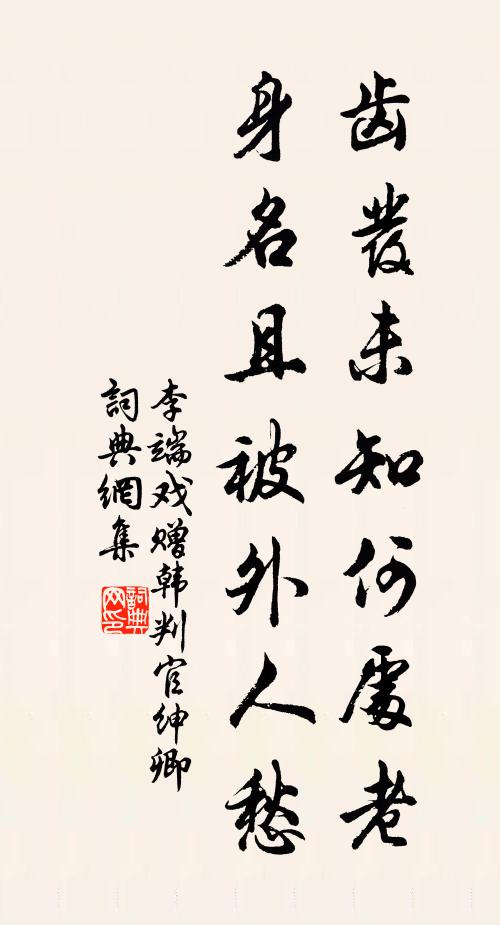 齿發未知何處老
身名且被外人愁
李端戏赠韩判官绅卿
詞典網集
詞典网印